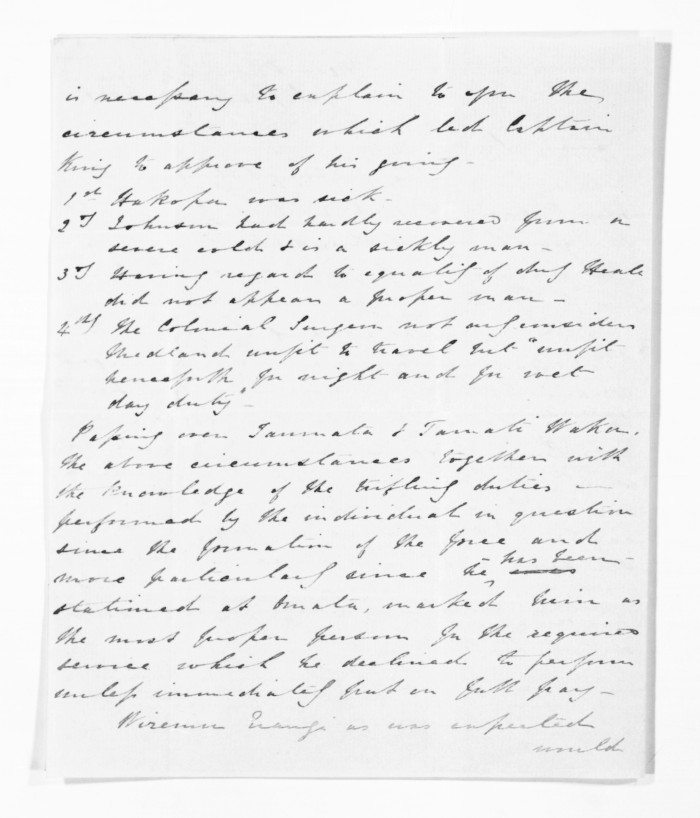 is necessary to explain to you the
circumstances which led Captain
King to approve of his going -
1st Hakopa was sick -
2d Johnson had hardly recovered from a
severe cold & is a sickly man -
3d Having regard to equality of duty Heale
did not appear a proper man -
4thly The Colonial Surgeon not only considers
Medland unfit to travel but "unfit
henceforth for night and for wet
day duty" -
Passing over Taumata & Tamati Waka,
the above circumstances together with
the knowledge of the trifling duties -
performed by the individual in question
since the formation of the force and
more particularly since he has been
stationed at Omata, marked him as
the most proper person for the required
service which he declined to perform
unless immediately put on full pay -
Wiremu as was expected
would